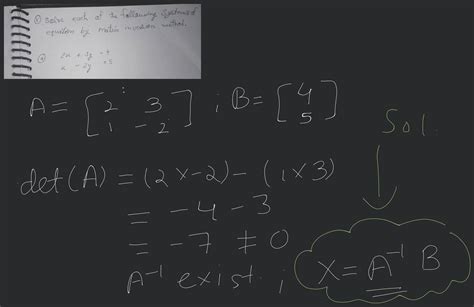 ① Solve each of the following systems of
equation by matrix inversion method.
ⓐ 2x + 3y = 4
x - 2y = 5
A = [2 3; B = [4
1 -2] 5]
Sol.
det(A) = (2 x -2) - (1 x 3)
= -4 - 3
= -7 ≠ 0
A⁻¹ exist ; X = A⁻¹ B